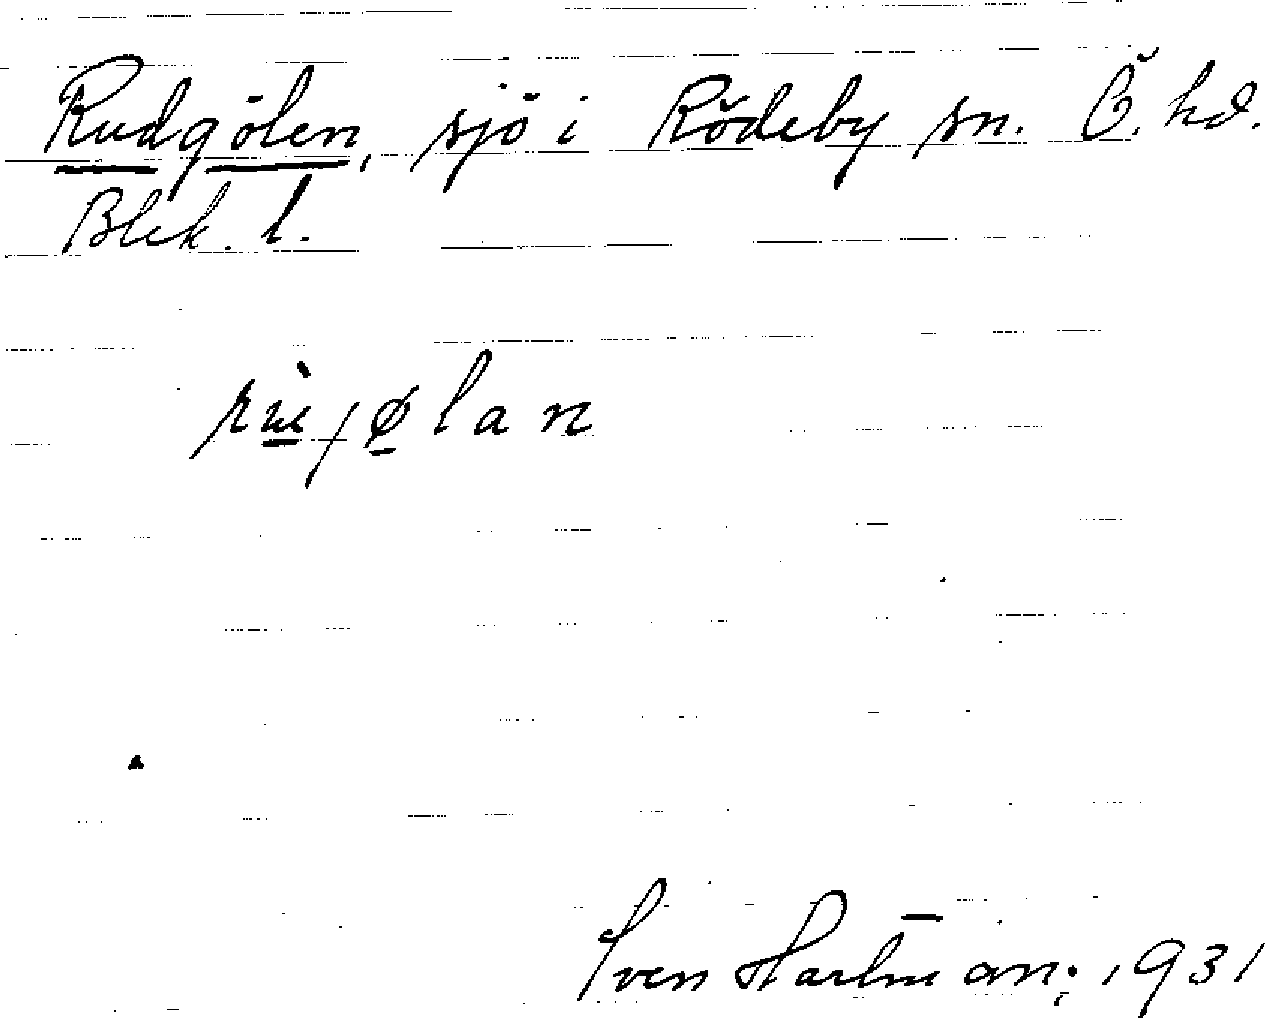 Rudgölen, sjö i Rödeby sn. Ö. hd.
Blek. l.
Sven Hartman; 1931